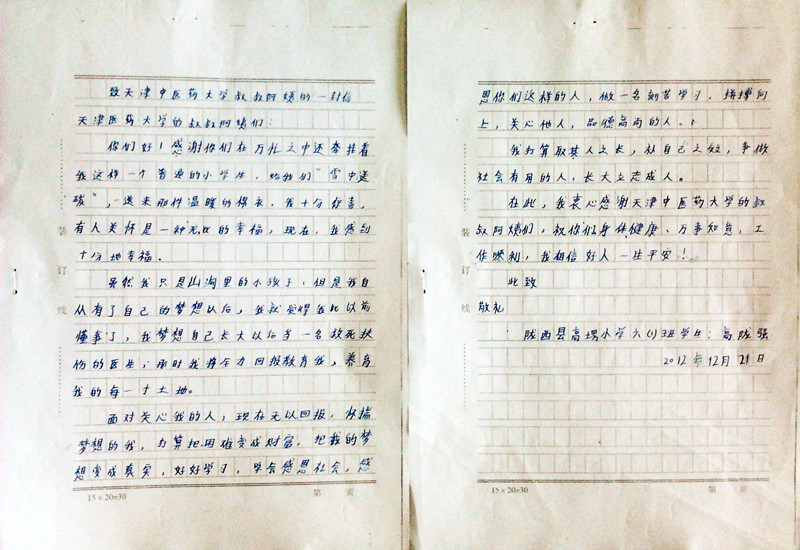 致天津中医药大学叔叔阿姨的一封信
天津医药大学的叔叔阿姨们：
你们好！感谢你们在万忙之中还牵挂着
我这样一个普通的小学生，给我们“雪中送
碳”，送来那件温暖的棉衣，我十分惊喜，
有人关怀是一种无比的幸福，现在，我感到
十分地幸福。
虽然我只是山沟里的小孩子，但是我自
从有了自己的梦想以后，我就觉得我比以前
懂事了，我梦想自己长大以后当一名救死扶
伤的医生；那时我将全力回报教育我，养育
我的每一寸土地。
面对关心我的人，现在无以回报，怀揣
梦想的我，打算把困难变成财富。把我的梦
想变成真实，好好学习，学会感恩社会，感
装
订
线
15×20=30
第 页
恩你们这样的人，做一名刻苦学习。拼搏向
上，关心他人，品德高尚的人。
我打算取其人之长，补自己之短，争做
社会有用的人，长大立志成人。
在此，我衷心感谢天津中医药大学的叔
叔阿姨们，祝你们身体健康、万事如意，工
作顺利，我相信好人一生平安！
此致
敬礼
陇西县高塄小学六(1)班学生：高陇强
2012年12月21日
装
订
线
15×20=30
第 页